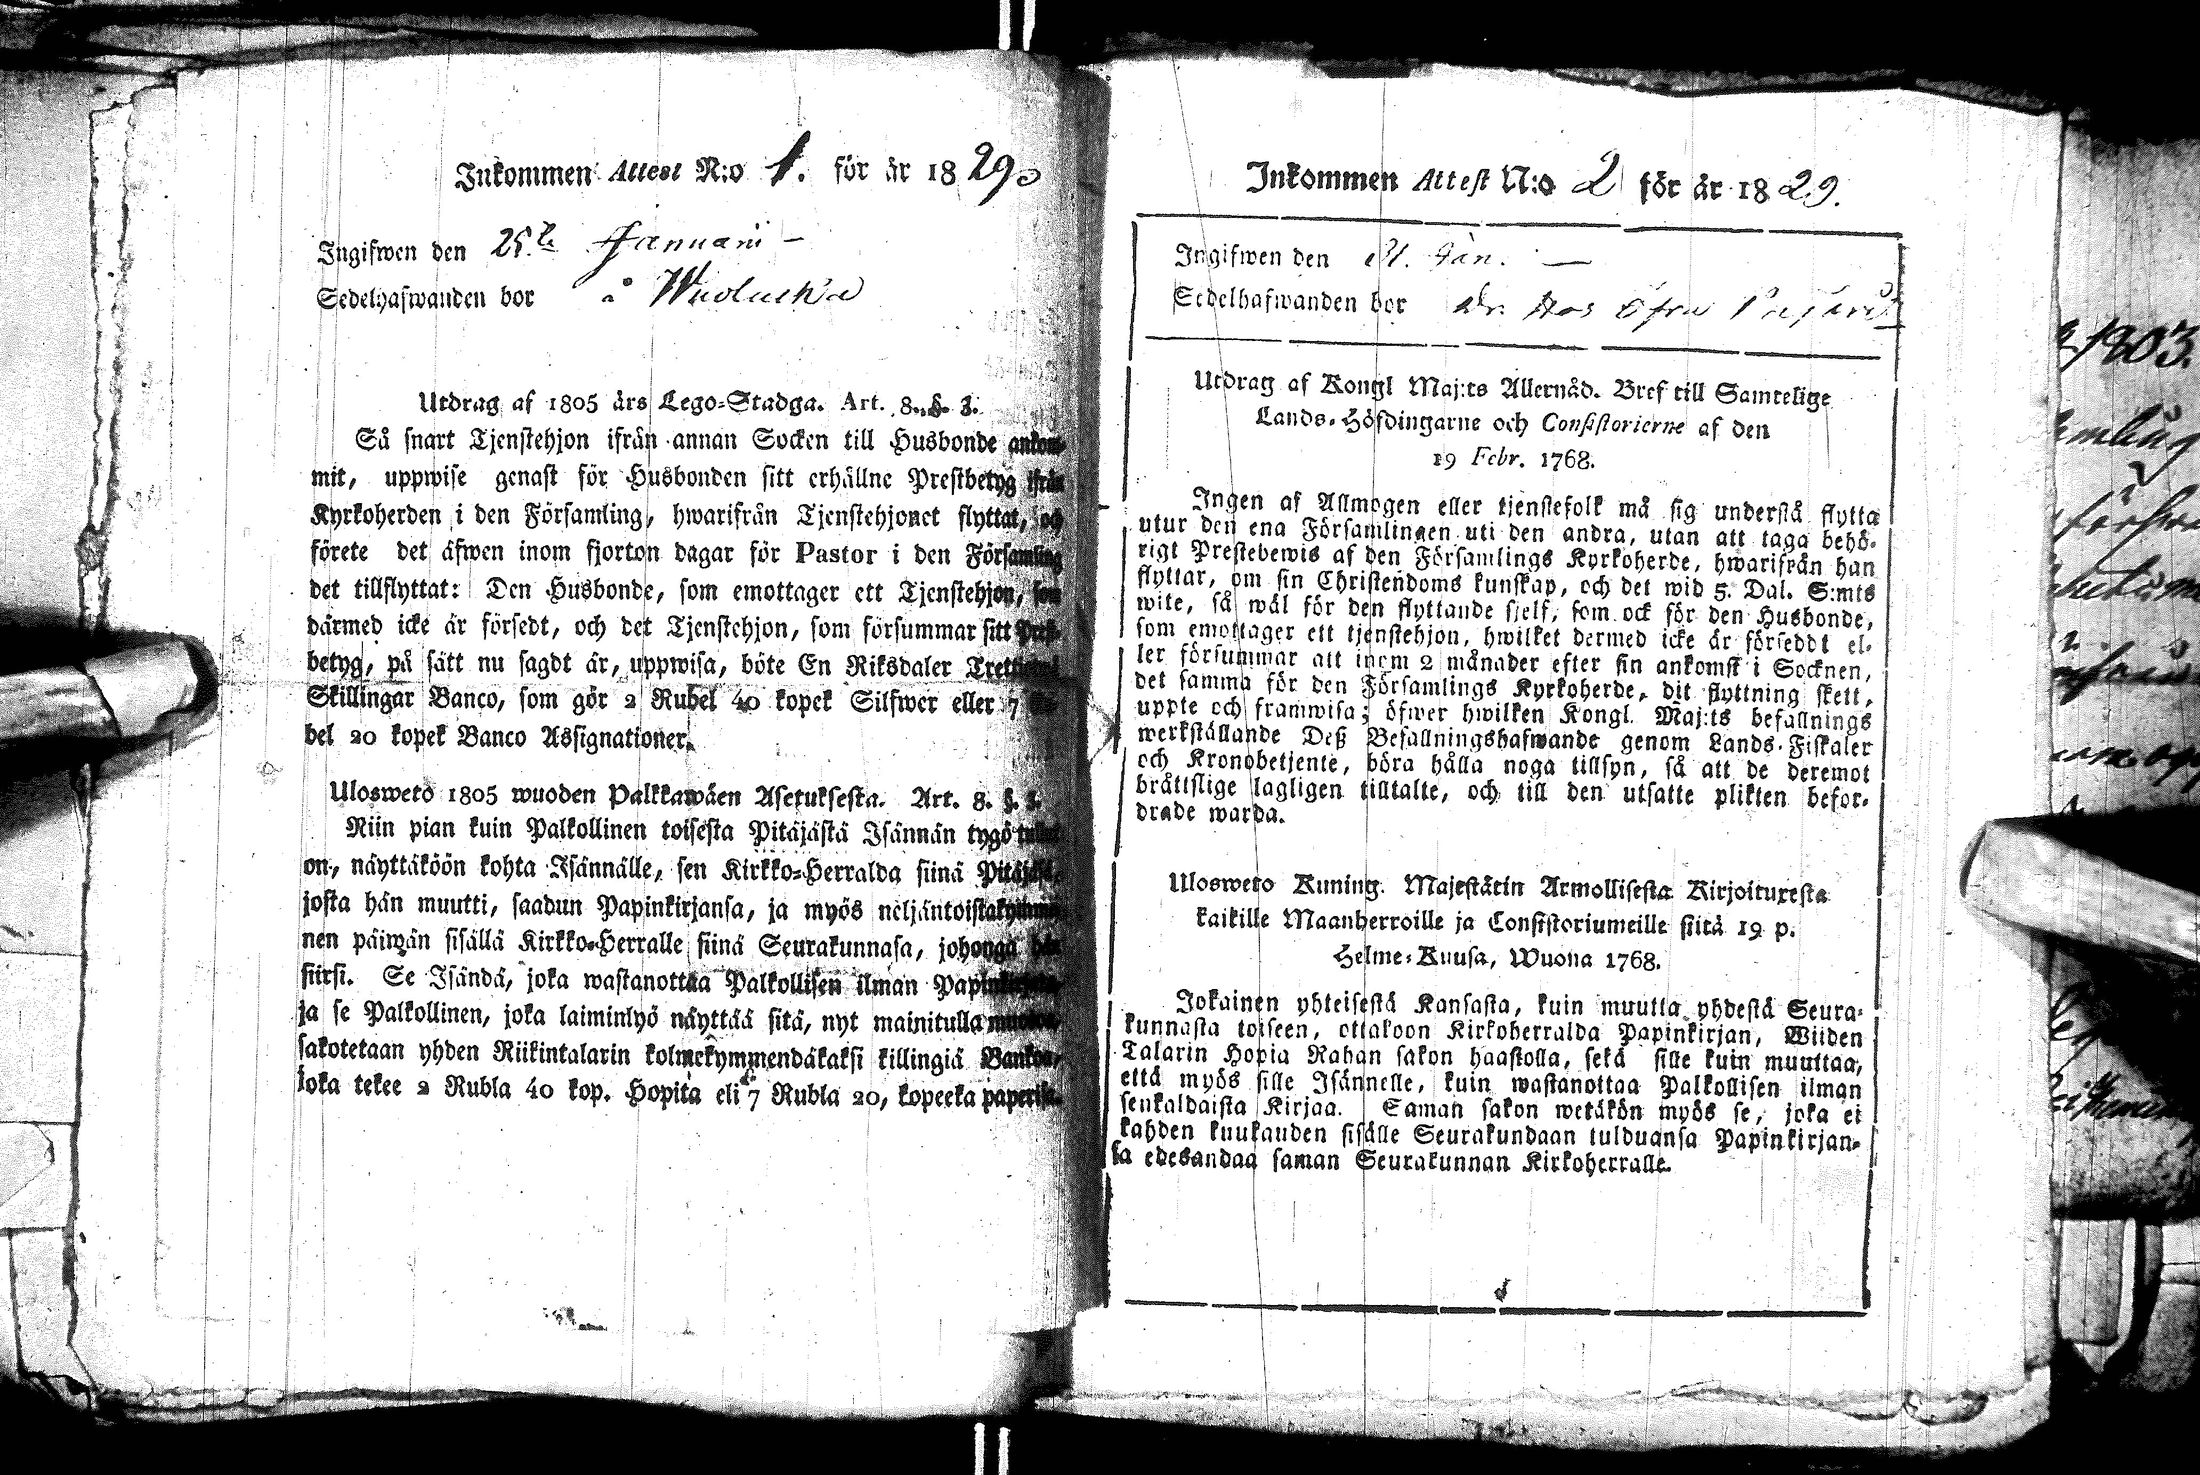 Inkommen Attest N:o 1. för år 1829
Ingifwen den 25.te Januari –
Sedelhafwanden bor å
Utdrag af 1805 års Lego=Stadga. Art. 8. §. 3.
Så snart Tjenstehjon ifrån annan Socken till Husbonde ankom-
mit, uppwise genast för Husbonden sitt erhållne Prestbetyg ifrån
Kyrkoherden i den Församling, hwarifrån Tjenstehjonet flyttat, och
förete det äfwen inom fjorton dagar för Pastor i den Församling
det tillflyttat: Den Husbonde, som emottager ett Tjenstehjon, som
därmed icke är försedt, och det Tjenstehjon, som försummar sitt Prest-
betyg, på sätt nu sagdt är, uppwisa, böte En Riksdaler
Skillingar Banco, som gör 2 Rubel 40 kopek Silfwer eller 7 Ru-
bel 20 kopek Banco Assignationer.
Ulosweto 1805 wuoden Palkkawäen Asetuksesta. Art. 8. §. 3.
Niin pian kuin Palkollinen toisesta Pitäjästä Isännän tygö tullut
on, näyttäköön kohta Isännälle, sen Kirkko=Herralda siinä
josta hän muutti, saadun Papinkirjansa, ja myös neljäntoistakymme-
nen päiwän sisällä Kirkko=Herralle siinä Seurakunnasa, johonga hän
siirsi. Se Isändä, joka wastanottaa Palkollisen ilman
ja se Palkollinen, joka laiminlyö näyttää sitä, nyt mainitulla muotoa,
sakotetaan yhden Riikintalarin kolmekymmendäkaksi killingiä Bankoa,
joka tekee 2 Rubla 40 kop. Hopita eli 7 Rubla 20, kopeeka paperisa.
Inkommen Attest N:o 2 för år 1829.
Ingifwen den 31. Jan. —
Sedelhafwanden bor
Utdrag af Kongl Maj:ts Allernåd. Bref till Samtelige
Lands=Höfdingarne och Consistorierne af den
19 Febr. 1768.
Ingen af Allmogen eller tjenstefolk må sig understå flytta
utur den ena Församlingen uti den andra, utan att taga behö-
rigt Prestebewis af den Församlings Kyrkoherde, hwarifrån han
flyttar, om sin Christendoms kunskap, och det wid 5. Dal. S:mts
wite, så wäl för den flyttande sjelf, som ock för den Husbonde,
som emottager ett tjenstehjon, hwilket dermed icke är förseddt el-
ler försummar att inom 2 månader efter sin ankomst i Socknen,
det samma för den Församlings Kyrkoherde, dit flyttning skett,
uppte och framwisa; öfwer hwilken Kongl. Maj:ts befallnings
werkställande Deß Befallningshafwande genom Lands=Fiskaler
och Kronobetjente, böra hålla noga tillsyn, så att de deremot
bråttslige lagligen tilltalte, och till den utsatte plikten befor-
drade warda.
Ulosweto Kuning. Majestätin Armollisesta Kirjoituxesta
kaikille Maanherroille ja Consistoriumeille siitä 19 p.
Helme=Kuusa, Wuona 1768.
Jokainen yhteisestä Kansasta, kuin muutta yhdestä Seura-
kunnasta toiseen, ottakoon Kirkoherralda Papinkirjan, Wiiden
Talarin Hopia Rahan sakon haastolla, sekä sille kuin muuttaa,
että myös sille Isännelle, kuin wastanottaa Palkollisen ilman
senkaldaista Kirjaa. Saman sakon wetäkön myös se, joka ei
kahden kuukauden sisälle Seurakundaan tulduansa Papinkirjan-
sa edesandaa saman Seurakunnan Kirkoherralle.
1803.